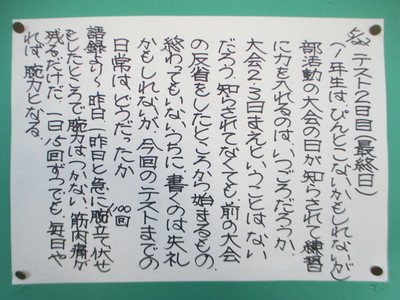 5/22 テスト2日目(最終日)
(1年生は、ぴんとこないかもしれないが)
部活動の大会の日が知らされて練習
に力を入れるのは、いつごろだろうか。
大会2・3日まえということはない
だろう。知らされてなくても前の大会
の反省をしたところから始まるもの。
終わってもいないうちに、書くのは失礼
かもしれないが、今回のテストまでの
日常は、どうだったか
語録より〜昨日一昨日と急に腕立て伏せ
100回
をしたところで腕力はつかない。筋肉痛が
残るだけだ。一日15回ずつでも、毎日や
れば、腕力となる。